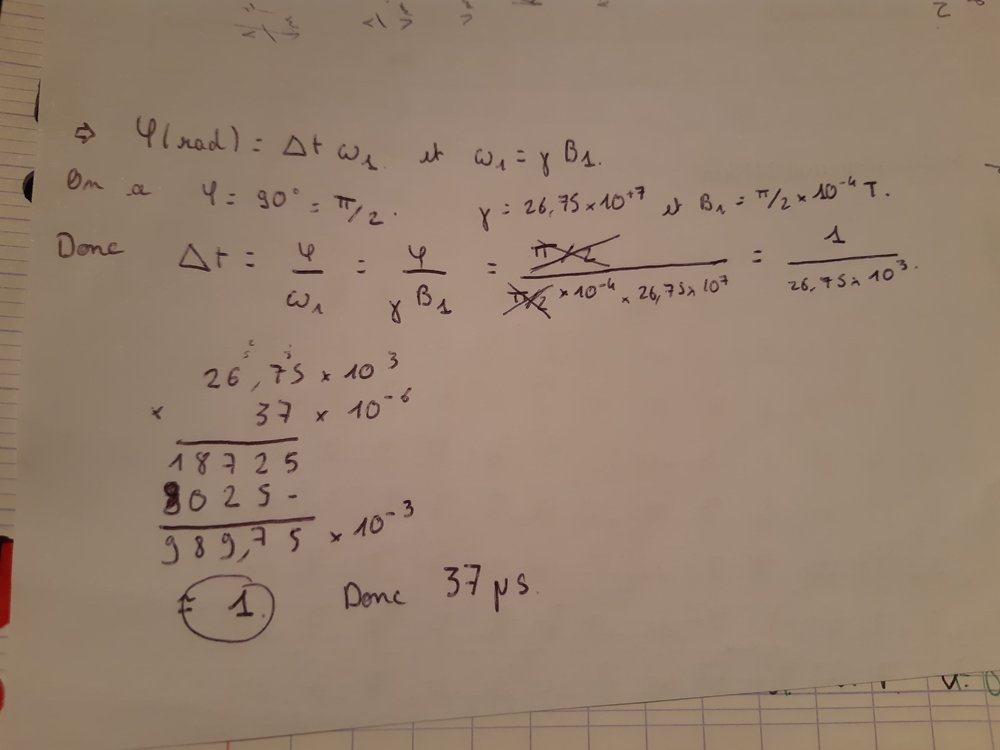 ⇒ φ(rad) = Δt ω₁ et ω₁ = γ B₁.
On a φ = 90° = π/2. γ = 26,75 × 10⁺⁷ et B₁ = π/2 × 10⁻⁴ T.
Donc Δt = φ/ω₁ = φ/(γ B₁) = (π/2)/(π/2 × 10⁻⁴ × 26,75 × 10⁷) = 1/(26,75 × 10³).
26,75 × 10³
× 37 × 10⁻⁶
18725
8025-
989,75 × 10⁻³
= 1. Donc 37 μs.